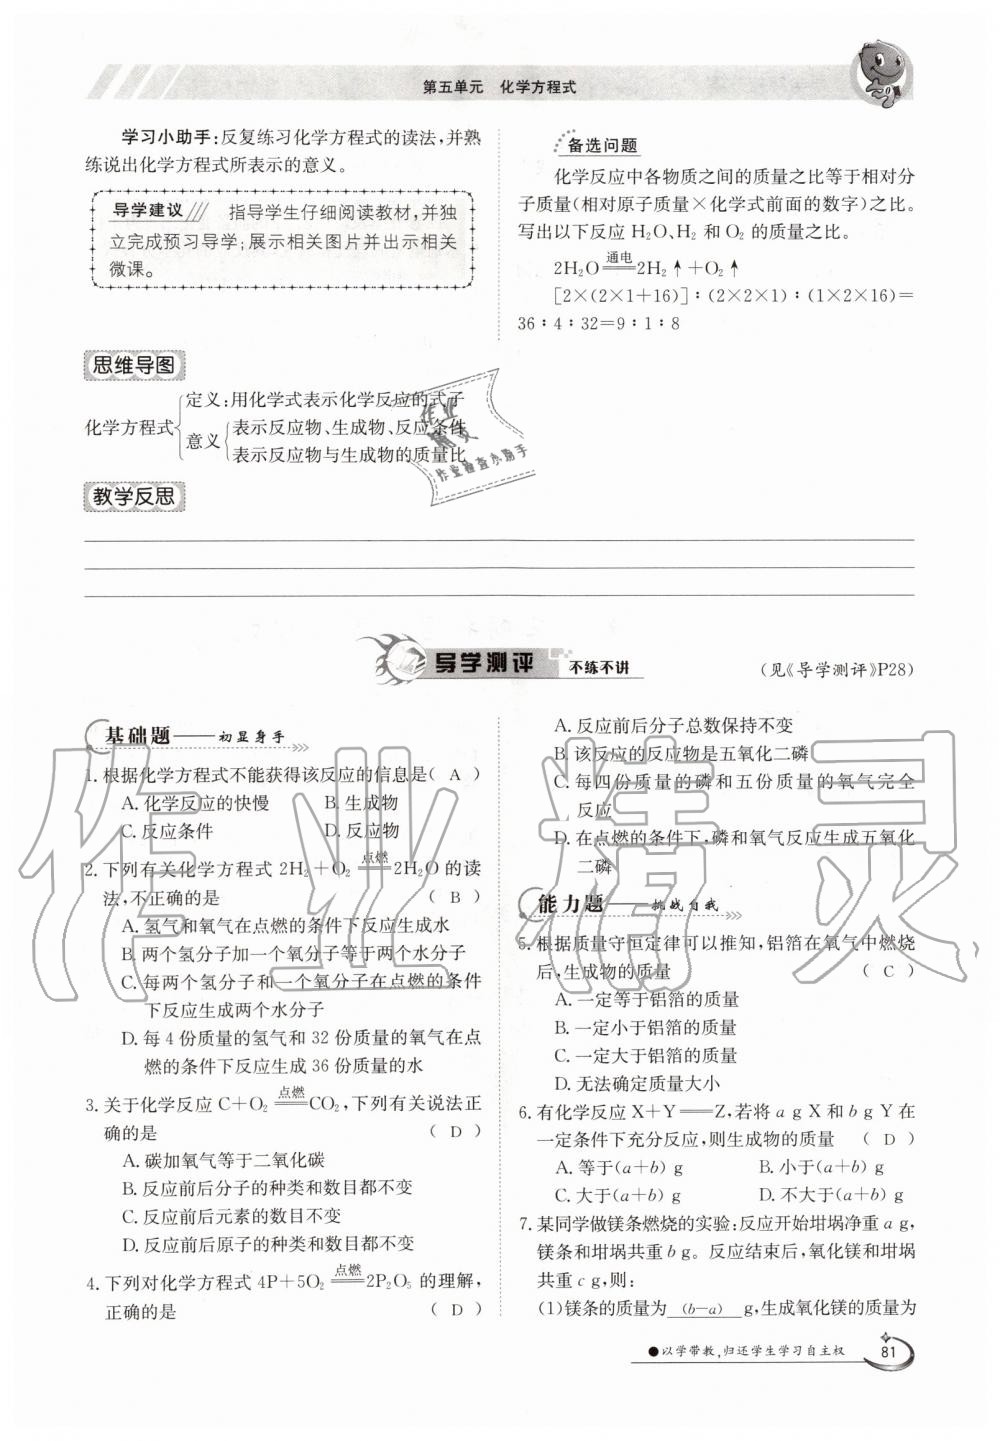 第五单元　化学方程式
学习小助手:反复练习化学方程式的读法,并熟
练说出化学方程式所表示的意义。
导学建议　指导学生仔细阅读教材,并独
立完成预习导学;展示相关图片并出示相关
微课。
备选问题
化学反应中各物质之间的质量之比等于相对分
子质量(相对原子质量×化学式前面的数字)之比。
写出以下反应 H₂O、H₂ 和 O₂ 的质量之比。
通电
2H₂O══2H₂↑+O₂↑
[2×(2×1+16)]∶(2×2×1)∶(1×2×16)=
36∶4∶32=9∶1∶8
思维导图
化学方程式
定义:用化学式表示化学反应的式子
意义
表示反应物、生成物、反应条件
表示反应物与生成物的质量比
作业
精灵
作业检查小助手
教学反思
导学测评　不练不讲
(见《导学测评》P28)
基础题——初显身手
1. 根据化学方程式不能获得该反应的信息是( A )
A. 化学反应的快慢　B. 生成物
C. 反应条件　D. 反应物
2. 下列有关化学方程式 2H₂+O₂ 点燃══ 2H₂O 的读
法,不正确的是　( B )
A. 氢气和氧气在点燃的条件下反应生成水
B. 两个氢分子加一个氧分子等于两个水分子
C. 每两个氢分子和一个氧分子在点燃的条件
下反应生成两个水分子
D. 每 4 份质量的氢气和 32 份质量的氧气在点
燃的条件下反应生成 36 份质量的水
3. 关于化学反应 C+O₂ 点燃══ CO₂,下列有关说法正
确的是　( D )
A. 碳加氧气等于二氧化碳
B. 反应前后分子的种类和数目都不变
C. 反应前后元素的数目不变
D. 反应前后原子的种类和数目都不变
4. 下列对化学方程式 4P+5O₂ 点燃══ 2P₂O₅ 的理解,
正确的是　( D )
A. 反应前后分子总数保持不变
B. 该反应的反应物是五氧化二磷
C. 每四份质量的磷和五份质量的氧气完全
反应
D. 在点燃的条件下,磷和氧气反应生成五氧化
二磷
能力题——挑战自我
5. 根据质量守恒定律可以推知,铝箔在氧气中燃烧
后,生成物的质量　( C )
A. 一定等于铝箔的质量
B. 一定小于铝箔的质量
C. 一定大于铝箔的质量
D. 无法确定质量大小
6. 有化学反应 X+Y══Z,若将 a g X 和 b g Y 在
一定条件下充分反应,则生成物的质量　( D )
A. 等于(a+b) g　B. 小于(a+b) g
C. 大于(a+b) g　D. 不大于(a+b) g
7. 某同学做镁条燃烧的实验:反应开始坩埚净重 a g,
镁条和坩埚共重 b g。反应结束后,氧化镁和坩埚
共重 c g,则:
(1)镁条的质量为 (b−a) g,生成氧化镁的质量为
●以学带教,归还学生学习自主权
81
作业精灵